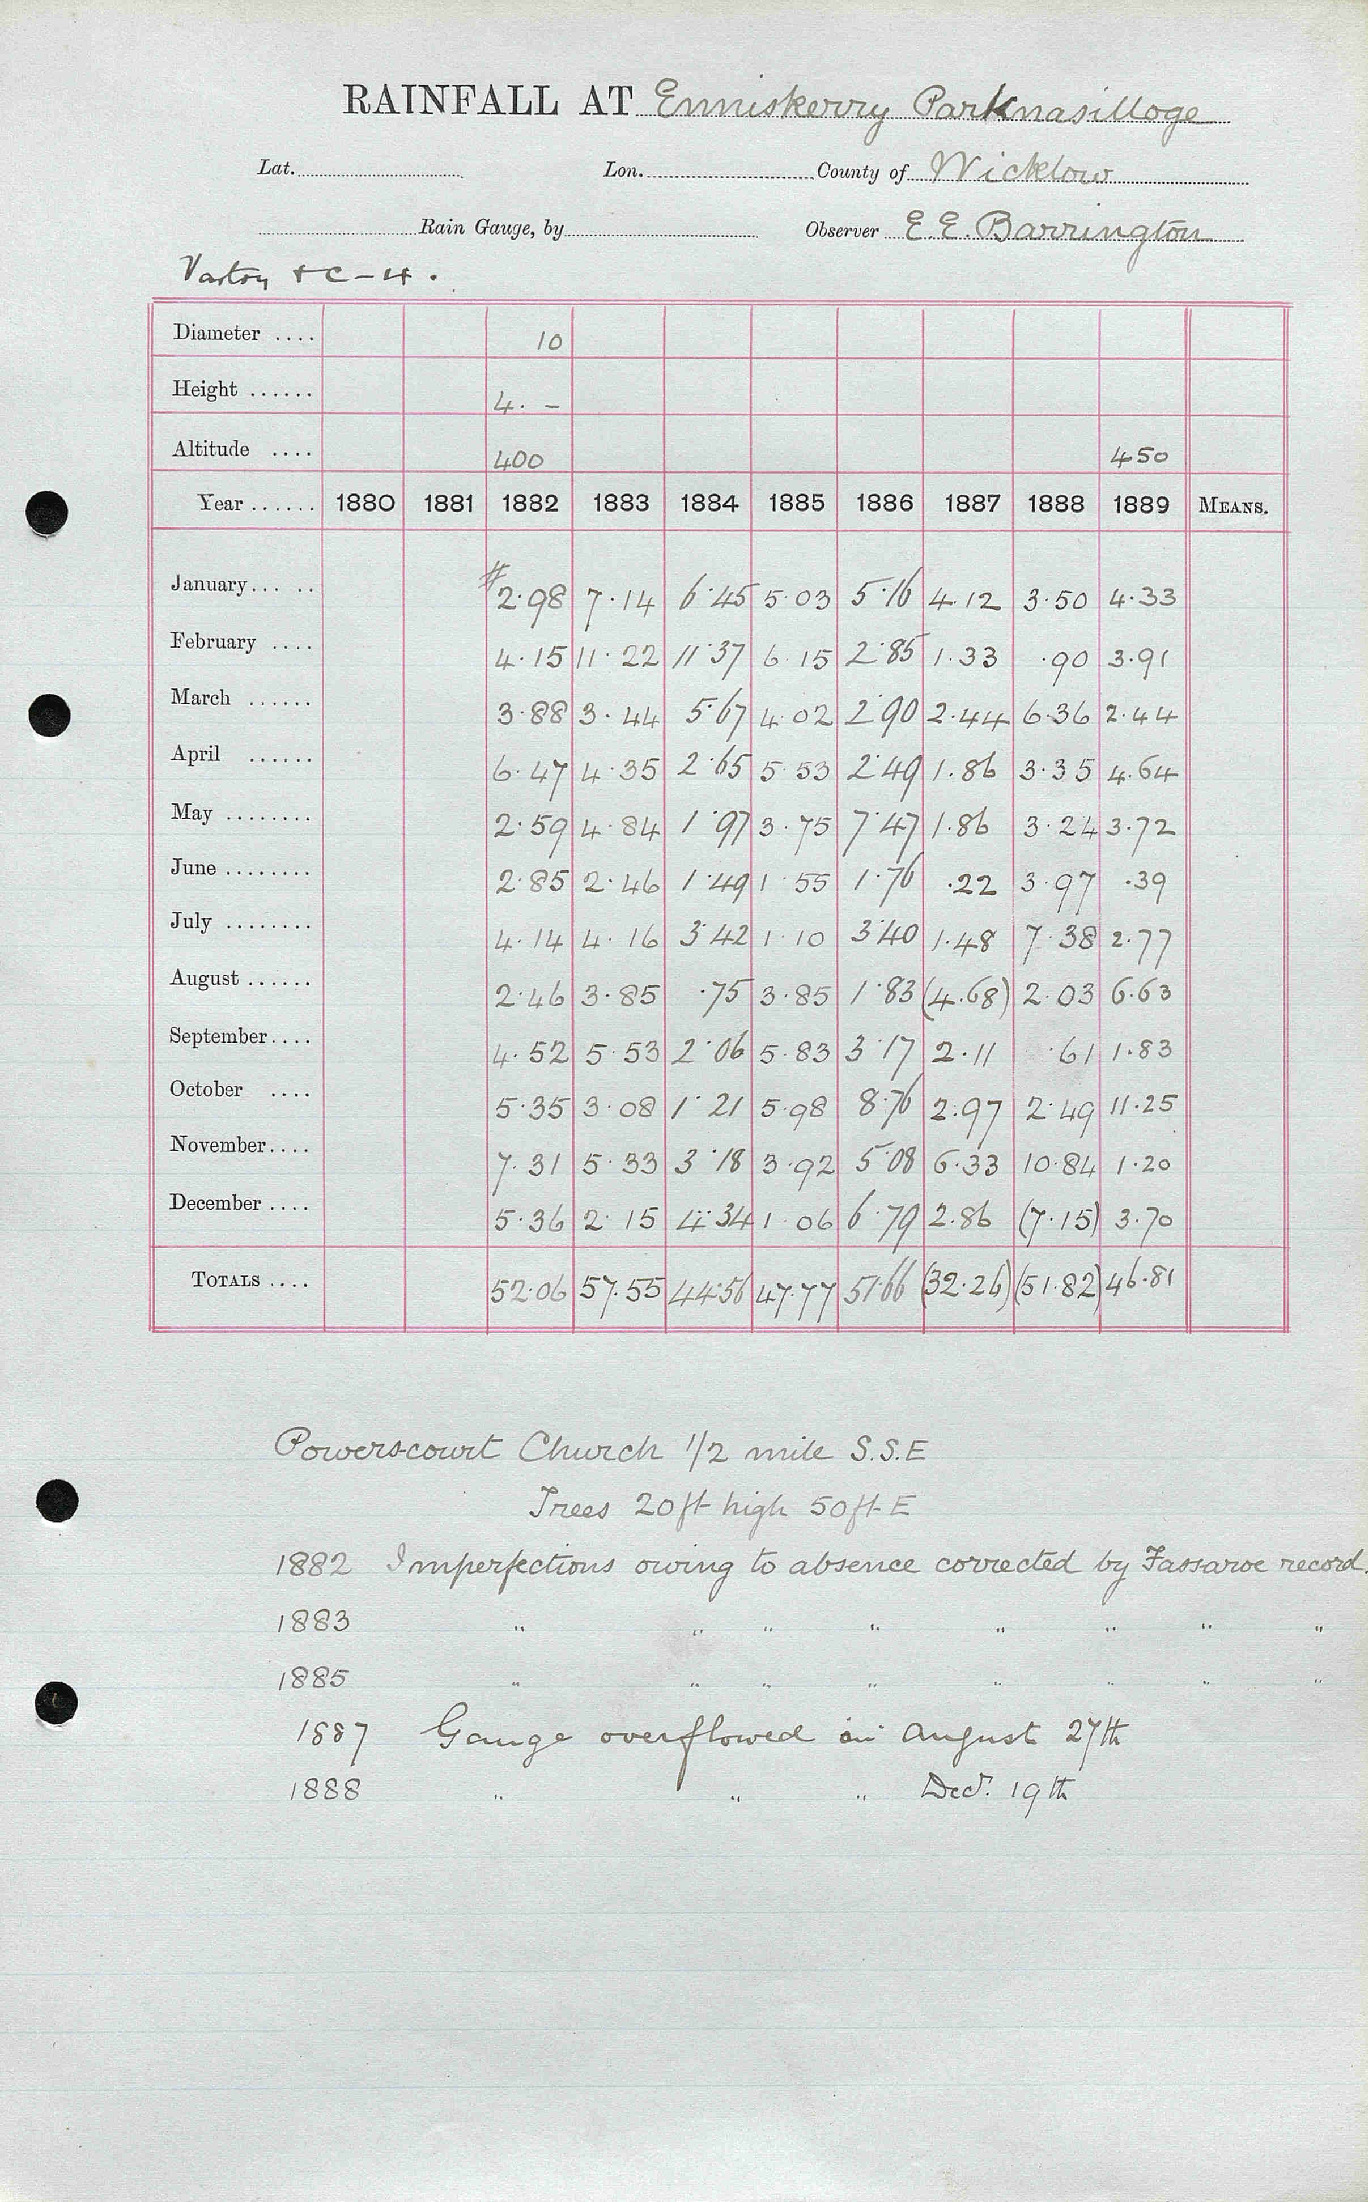 RAINFALL AT Enniskerry Parknasilloge
Lat. Lon. County of Wicklow
Rain Gauge, by Observer E. E. Barrington
Vartry & C - 4.
Diameter .... 10
Height ...... 4. -
Altitude .... 400 450
Year ...... 1880 1881 1882 1883 1884 1885 1886 1887 1888 1889 MEANS.
January... .. #2.98 7.14 6.45 5.03 5.16 4.12 3.50 4.33
February .... 4.15 11.22 11.37 6.15 2.85 1.33 .90 3.91
March ...... 3.88 3.44 5.67 4.02 2.90 2.44 6.36 2.44
April ...... 6.47 4.35 2.65 5.53 2.49 1.86 3.35 4.64
May ........ 2.59 4.84 1.97 3.75 7.47 1.86 3.24 3.72
June ........ 2.85 2.46 1.49 1.55 1.76 .22 3.97 .39
July ........ 4.14 4.16 3.42 1.10 3.40 1.48 7.38 2.77
August ...... 2.46 3.85 .75 3.85 1.83 (4.68) 2.03 6.63
September.... 4.52 5.53 2.06 5.83 3.17 2.11 .61 1.83
October .... 5.35 3.08 1.21 5.98 8.76 2.97 2.49 11.25
November.... 7.31 5.33 3.18 3.92 5.08 6.33 10.84 1.20
December .... 5.36 2.15 4.34 1.06 6.79 2.86 (7.15) 3.70
TOTALS .... 52.06 57.55 44.56 47.77 51.66 (32.26) (51.82) 46.81
Powerscourt Church 1/2 mile S.S.E
Trees 20ft high 50ft E
1882 Imperfections owing to absence corrected by Fassaroe record.
1883 " " " " " " " "
1885 " " " " " " " "
1887 Gauge overflowed on August 27th
1888 " " " Decr. 19th